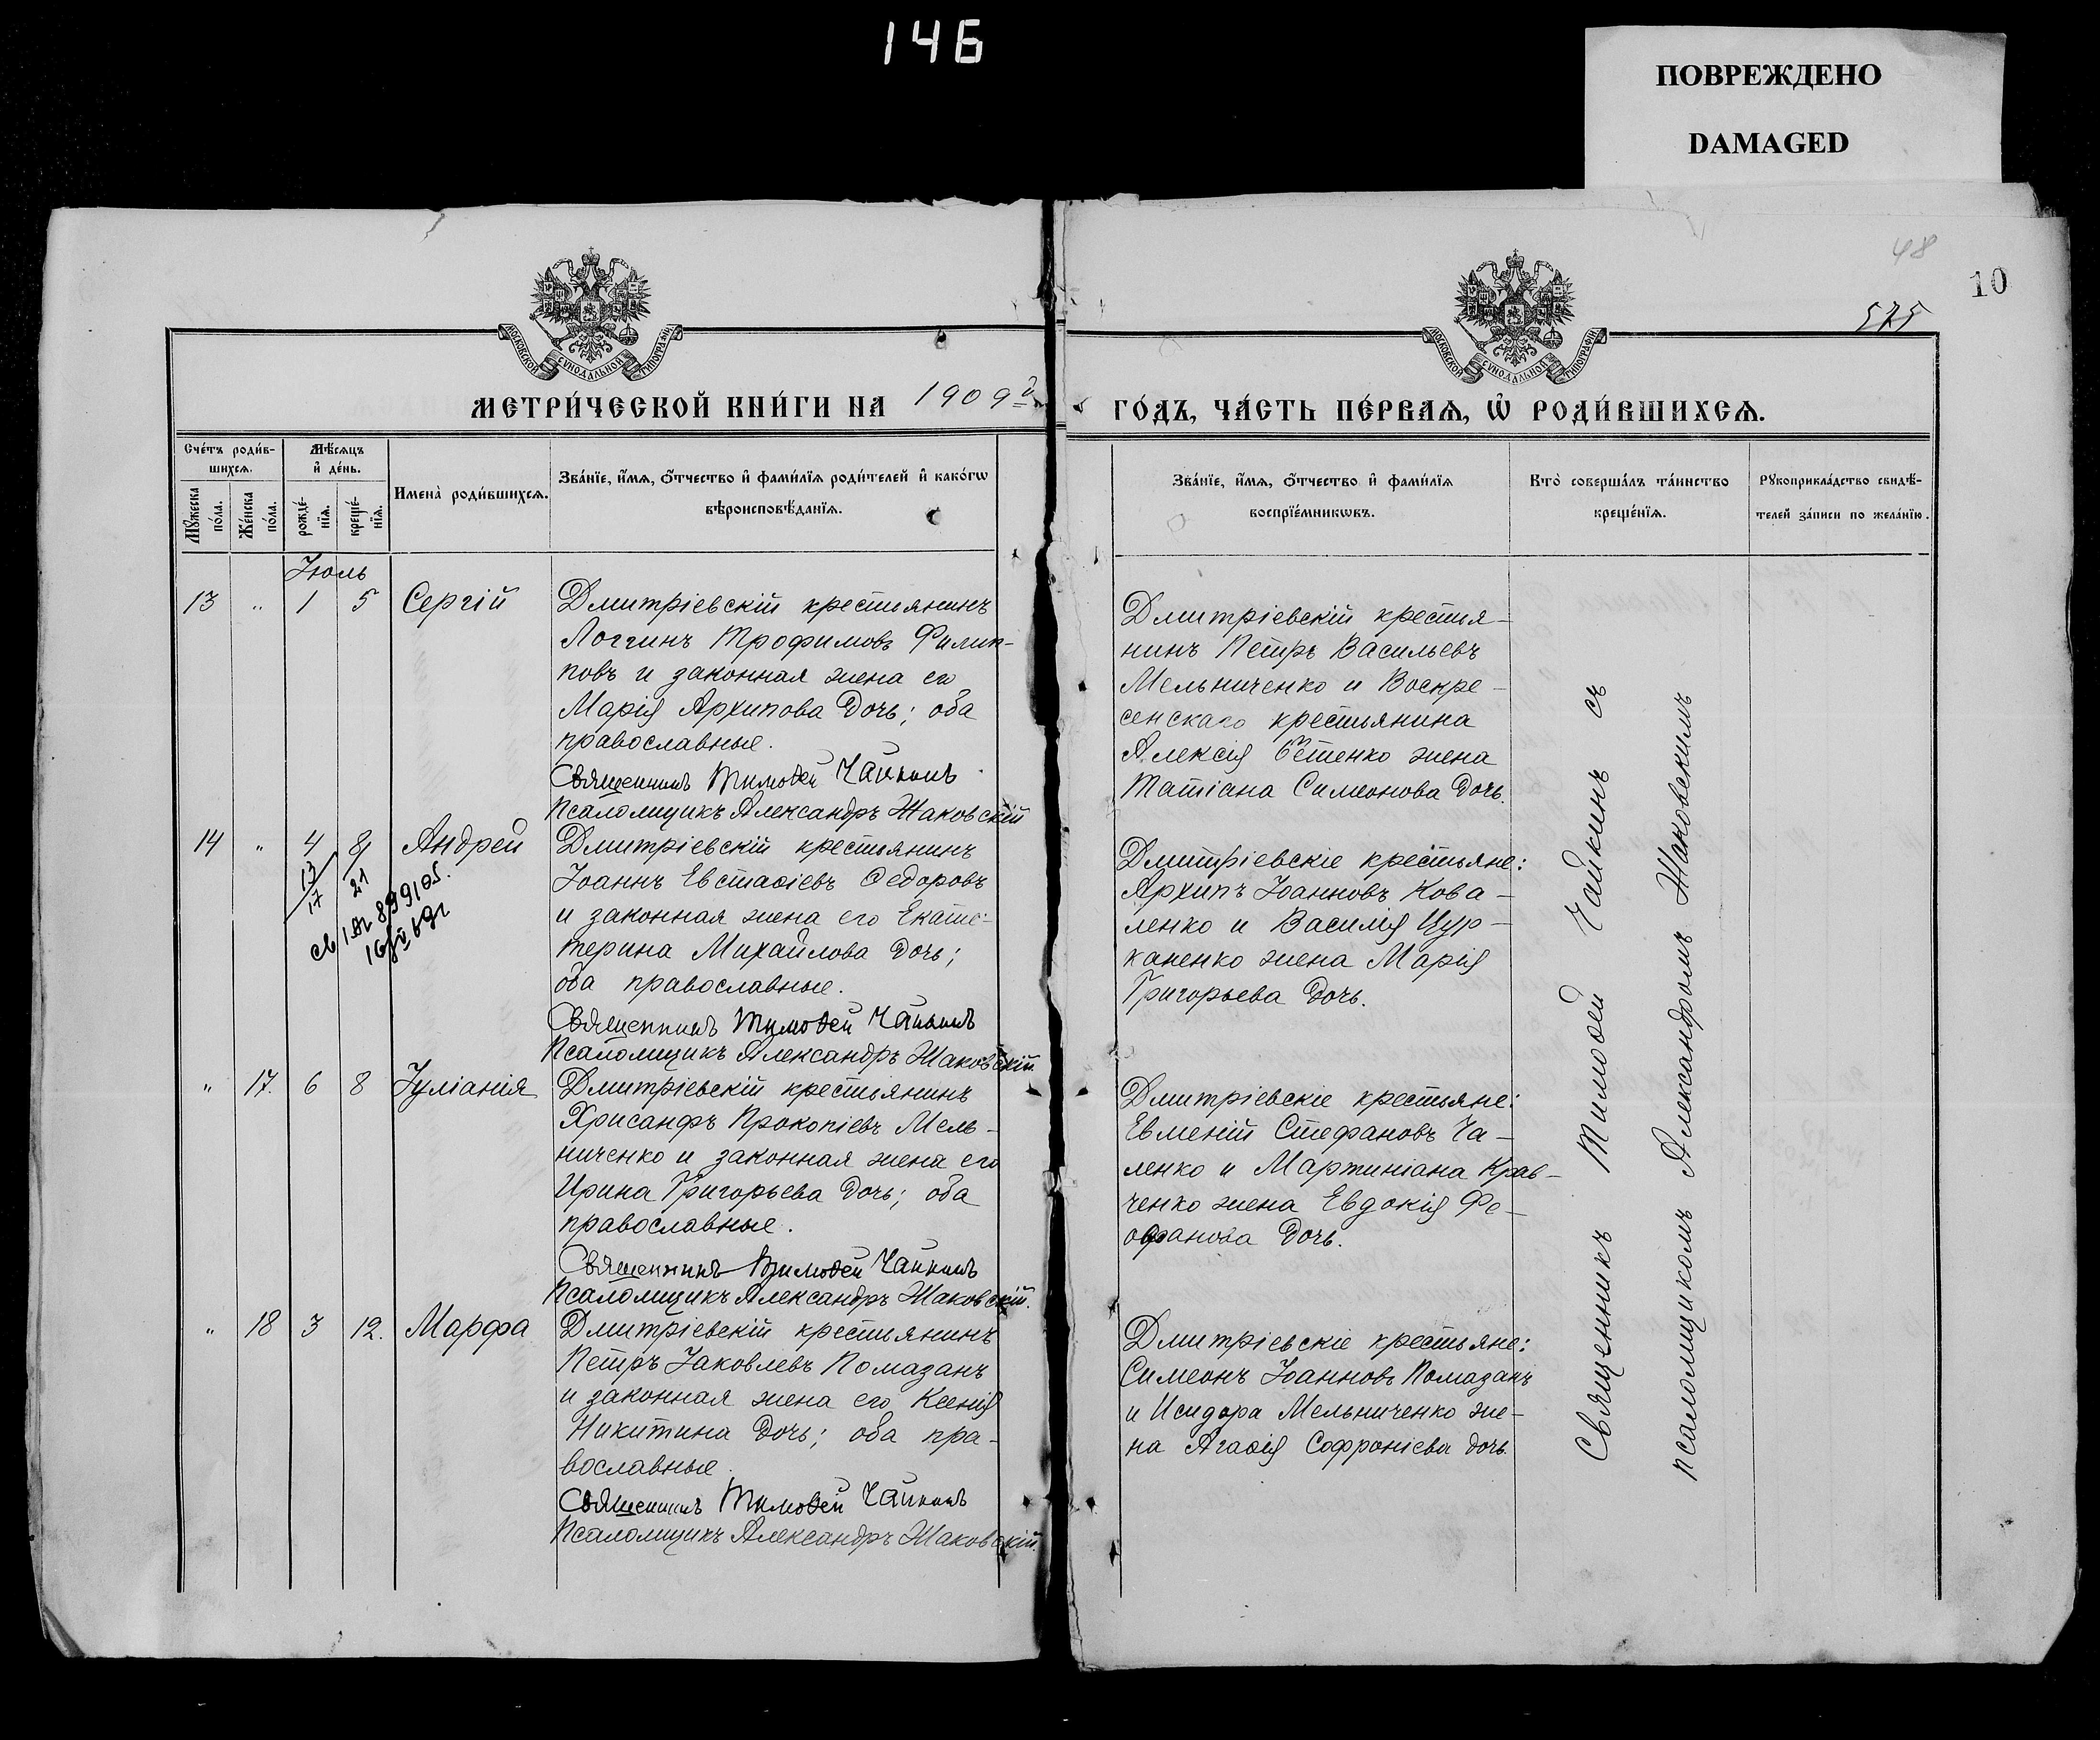 146
ПОВРЕЖДЕНО
DAMAGED
48
10
575
МОСКОВСКОЙ СѴНОДАЛЬНОЙ ТИПОГРАФІИ
МОСКОВСКОЙ СѴНОДАЛЬНОЙ ТИПОГРАФІИ
МЕТРИ́ЧЕСКОЙ КНИ́ГИ НА 1909й
ГО́ДЪ, ЧА́СТЬ ПЕ́РВАѦ, Ѡ҆ РОДИ́ВШИХСѦ.
Сче́тъ роди́в-
шихсѧ.
Мѣ́сѧцъ
и҆ де́нь.
Мꙋ́жеска
по́ла.
Же́нска
по́ла.
рожде́-
нїѧ.
креще́-
нїѧ.
Имена̀ роди́вшихсѧ.
Зва́нїе, и҆́мѧ, ѻ҆́тчество и҆ фами́лїѧ роди́телей и҆ како́гѡ
вѣроисповѣ́данїѧ.
Зва́нїе, и҆́мѧ, ѻ҆́тчество и҆ фами́лїѧ
воспрїе́мникѡвъ.
Кто̀ соверша́лъ та́инство
креще́нїѧ.
Рꙋкоприкла́дство свидѣ́-
телей за́писи по жела́нїю.
Іюль
13 " 1 5 Сергій
Дмитріевскій крестьянинъ
Логгинъ Трофимовъ Филип-
повъ и законная жена его
Марія Архипова дочь; оба
православные.
Священникъ Тимоѳей Чайкинъ
Псаломщикъ Александръ Жаковскій
Дмитріевскій крестья-
нинъ Петръ Васильевъ
Мельниченко и Воскре-
сенскаго крестьянина
Алексія жена
Татіана Симеонова дочь.
14 " 4 8 Андрей
13/17 21
св 1 899105.
Дмитріевскій крестьянинъ
Іоаннъ Евстаѳіевъ Ѳедоровъ
и законная жена его Екате-
терина Михайлова дочь;
оба православные.
Священникъ Тимоѳей Чайкинъ
Псаломщикъ Александръ Жаковскій
Дмитріевскіе крестьяне:
Архипъ Іоанновъ Кова-
ленко и Василія Цур-
каненко жена Марія
Григорьева дочь.
" 17. 6 8 Іуліанія
Дмитріевскій крестьянинъ
Хрисанфъ Прокопіевъ Мель-
ниченко и законная жена его
Ирина Григорьева дочь; оба
православные.
Священникъ Тимоѳей Чайкинъ
Псаломщикъ Александръ Жаковскій.
Дмитріевскіе крестьяне:
Евменій Стефановъ Ча-
ленко и Мартиніана Крав-
ченко жена Евдокія Фе-
офанова дочь.
" 18 3 12. Марфа
Дмитріевскій крестьянинъ
Петръ Іаковлевъ Помазанъ
и законная жена его Ксенія
Никитина дочь; оба пра-
вославные.
Священникъ Тимоѳей Чайкинъ
Псаломщикъ Александръ Жаковскій.
Дмитріевскіе крестьяне:
Симеонъ Іоанновъ Помазанъ
и Исидора Мельниченко же-
на Агаѳія Софроніева дочь.
Священникъ Тимоѳей Чайкинъ съ
псаломщикомъ Александромъ Жаковскимъ